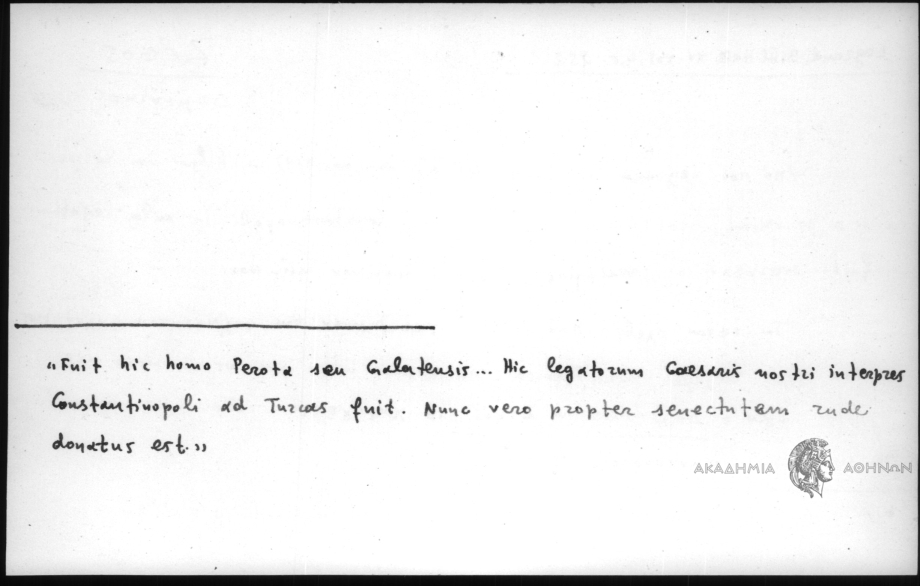 „Fuit hic homo Perota seu Galatensis... Hic legatorum Caesaris nostri interpres
Constantinopoli ad Turcas fuit. Nunc vero propter senectutem rude
donatus est.„
ΑΚΑΔΗΜΙΑ ΑΘΗΝΩΝ